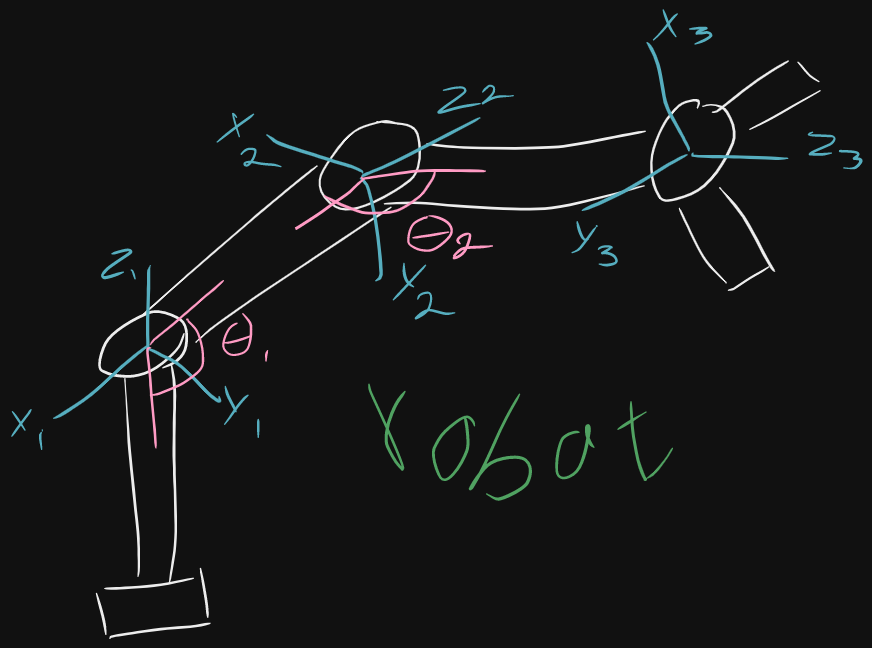 X3
Z2
X2
Z3
Y3
Θ2
Z1
Y2
Θ1
X1
Y1
robot